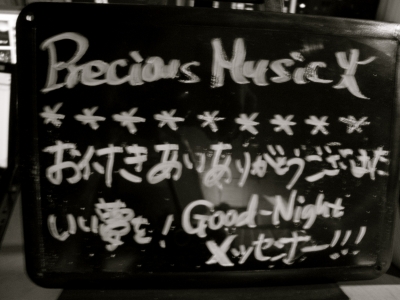 Precious Music
* * * * * * * * *
おつきあいありがとうございました
いい夢を! Good-Night
メッセンナー!!!